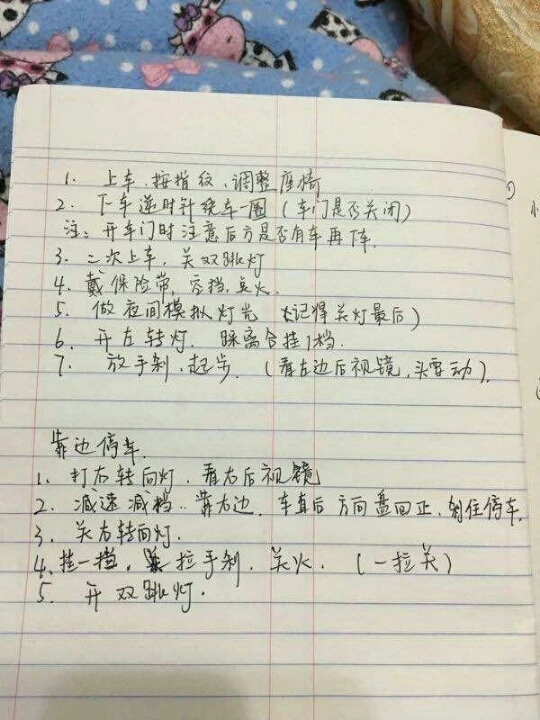 1. 上车、按指纹、调整座椅
2. 下车逆时针绕车一圈（车门是否关闭）
注：开车门时注意后方是否有车再下车.
3. 二次上车，关双跳灯
4. 戴保险带，空挡，点火.
5. 做夜间模拟灯光（记得关灯最后）
6. 开左转灯. 踩离合挂1档.
7. 放手刹，起步.（看左边后视镜，头要动）.
靠边停车.
1. 打右转向灯. 看右后视镜
2. 减速减档. 靠右边. 车直后方向盘回正，刹住停车.
3. 关右转向灯.
4. 挂一挡，拉手刹. 关火.（一拉关）
5. 开双跳灯.